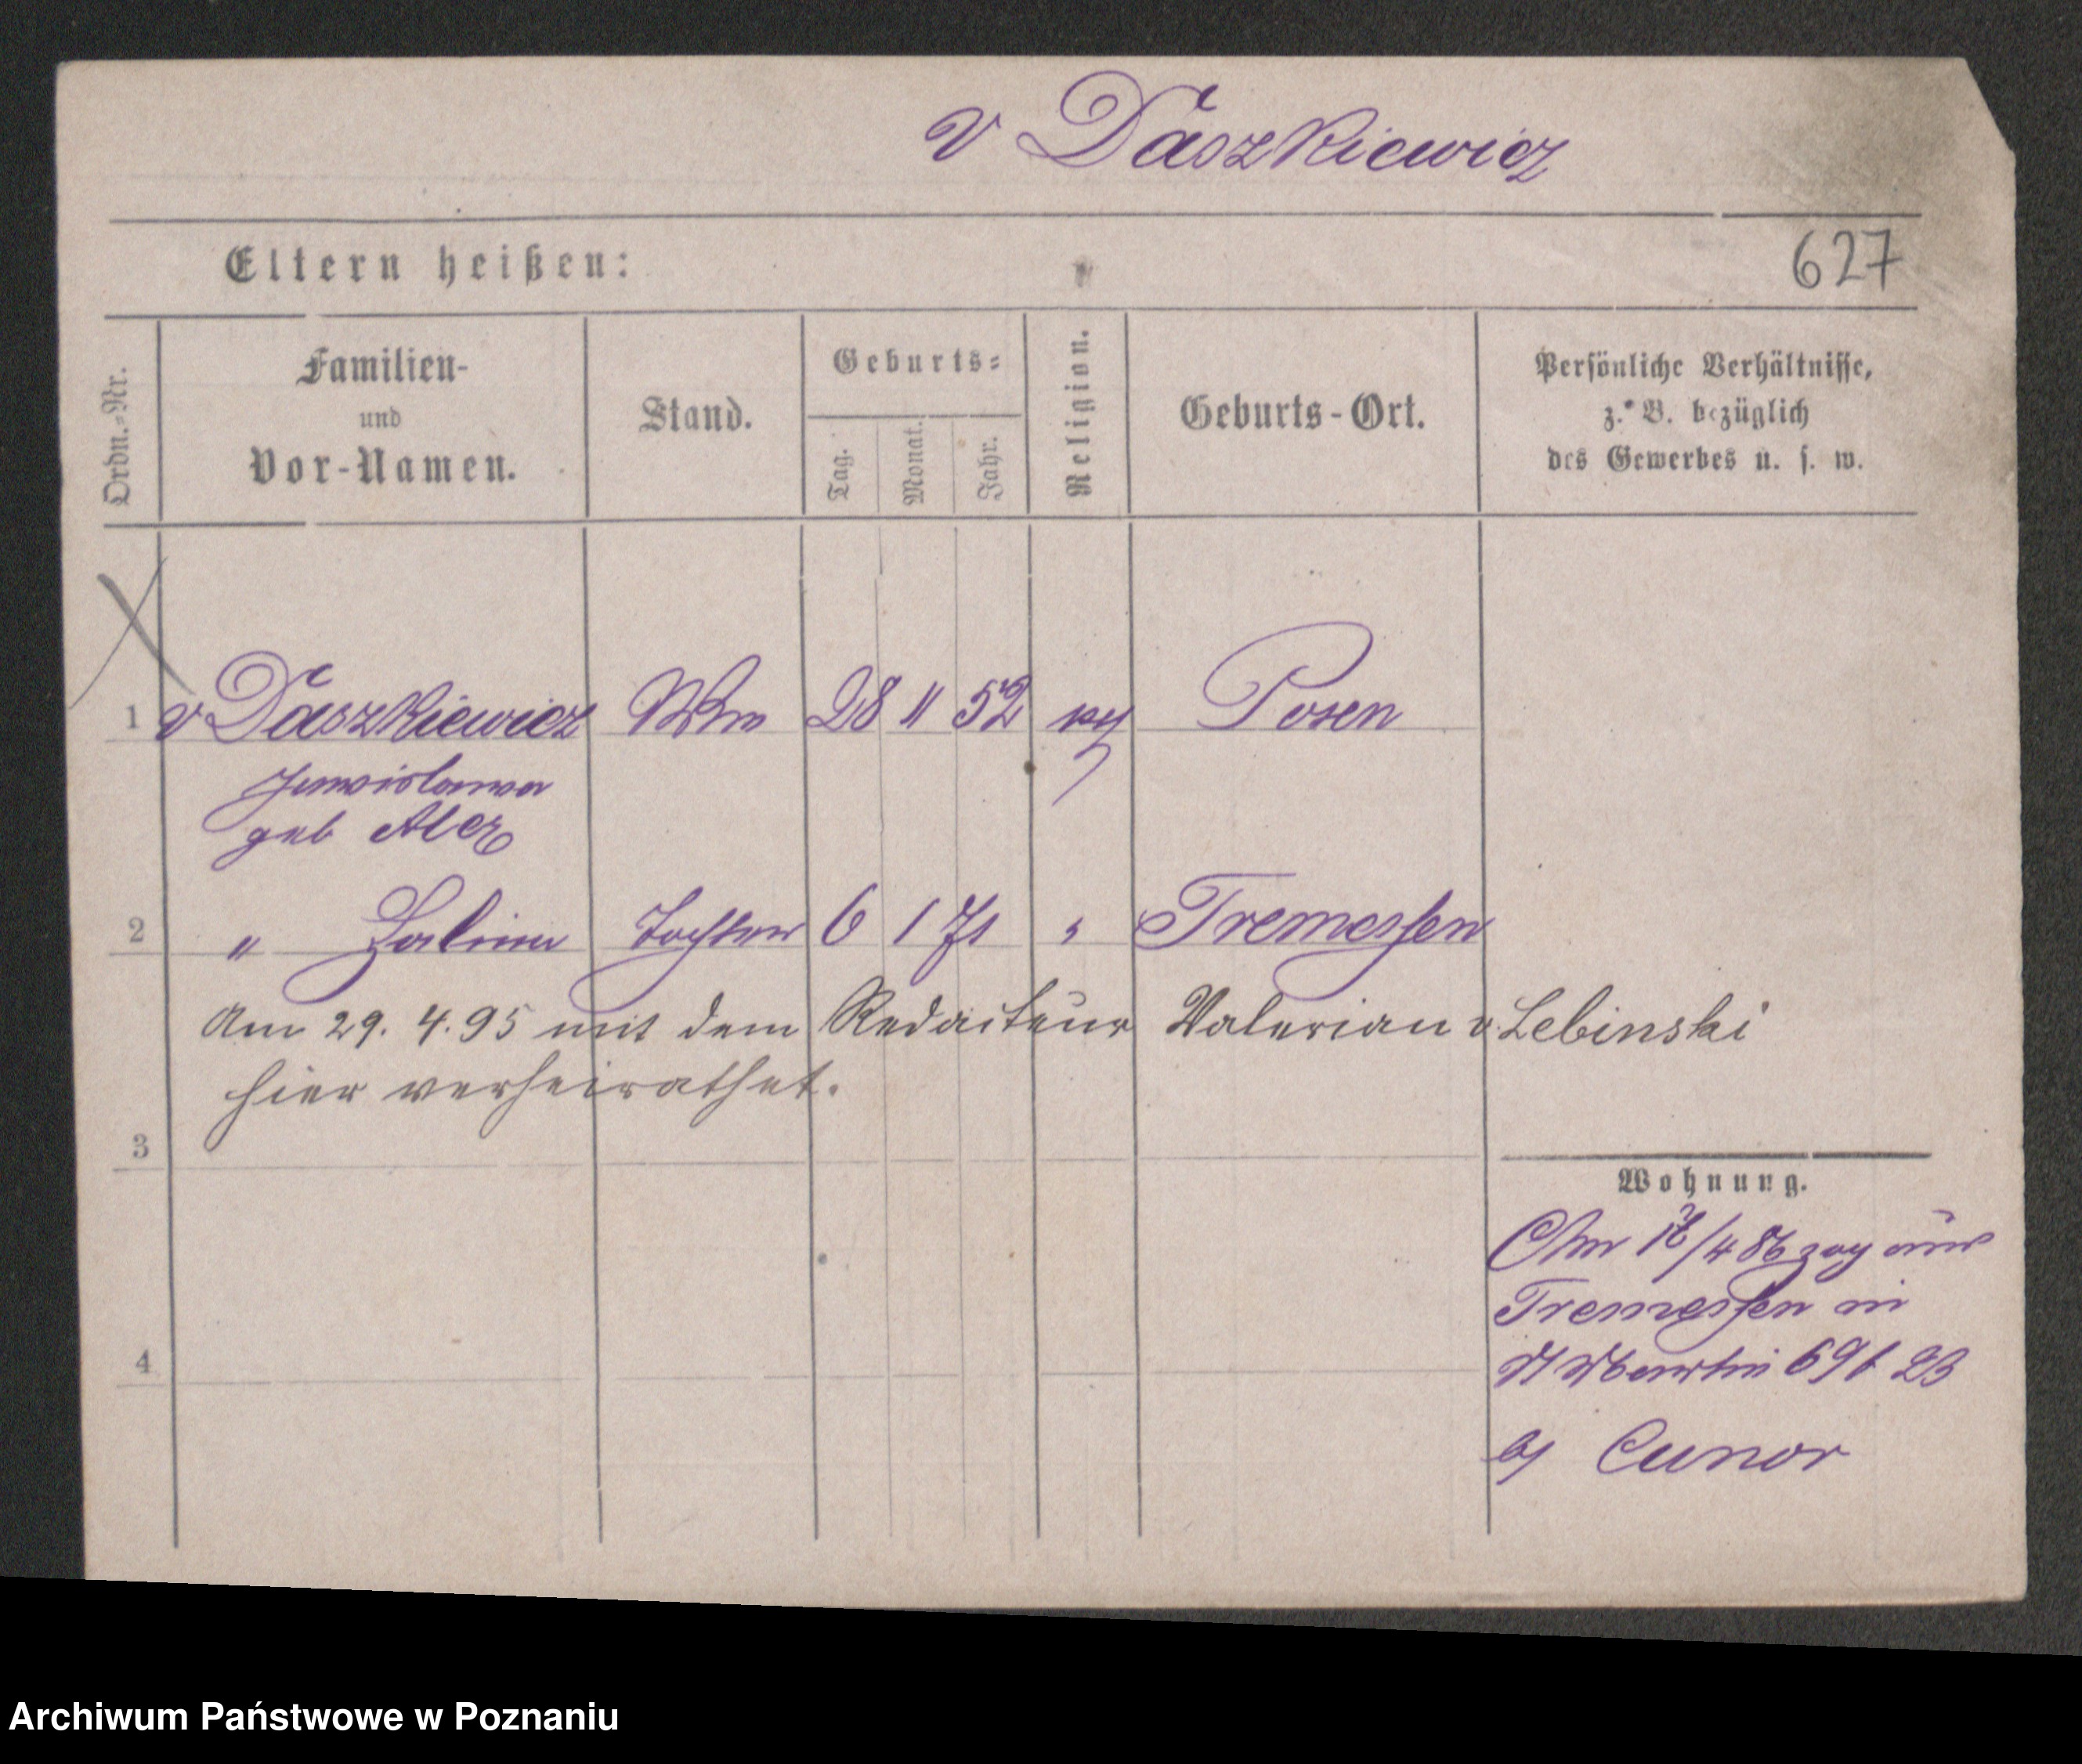 v Daszkiewicz
Eltern heißen:
627
Ordn.-Nr.
Familien-
und
Vor-Namen.
Stand.
Geburts-
Tag.
Monat.
Jahr.
Religion.
Geburts-Ort.
Persönliche Verhältnisse,
z. B. bezüglich
des Gewerbes u. s. w.
1 v Daszkiewicz Wwe 28 11 52 Posen
geb
2 " Tochter 6 1 71 " Tremessen
Am 29. 4. 95 mit dem Redacteur Valerian v. Lebinski
hier verheirathet.
3
Wohnung.
Am /4 86 zog aus
Tremessen in
St Martin 69
4
bei Cunow
Archiwum Państwowe w Poznaniu